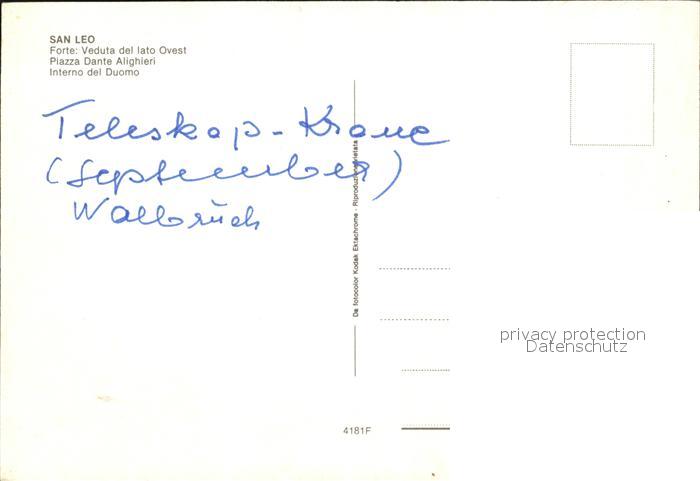 SAN LEO
Forte: Veduta del lato Ovest
Piazza Dante Alighieri
Interno del Duomo
Teleskop-Krane
(September)
Walbruch
De fotocolor Kodak Ektachrome - Riproduzione vietata
privacy protection
Datenschutz
4181F